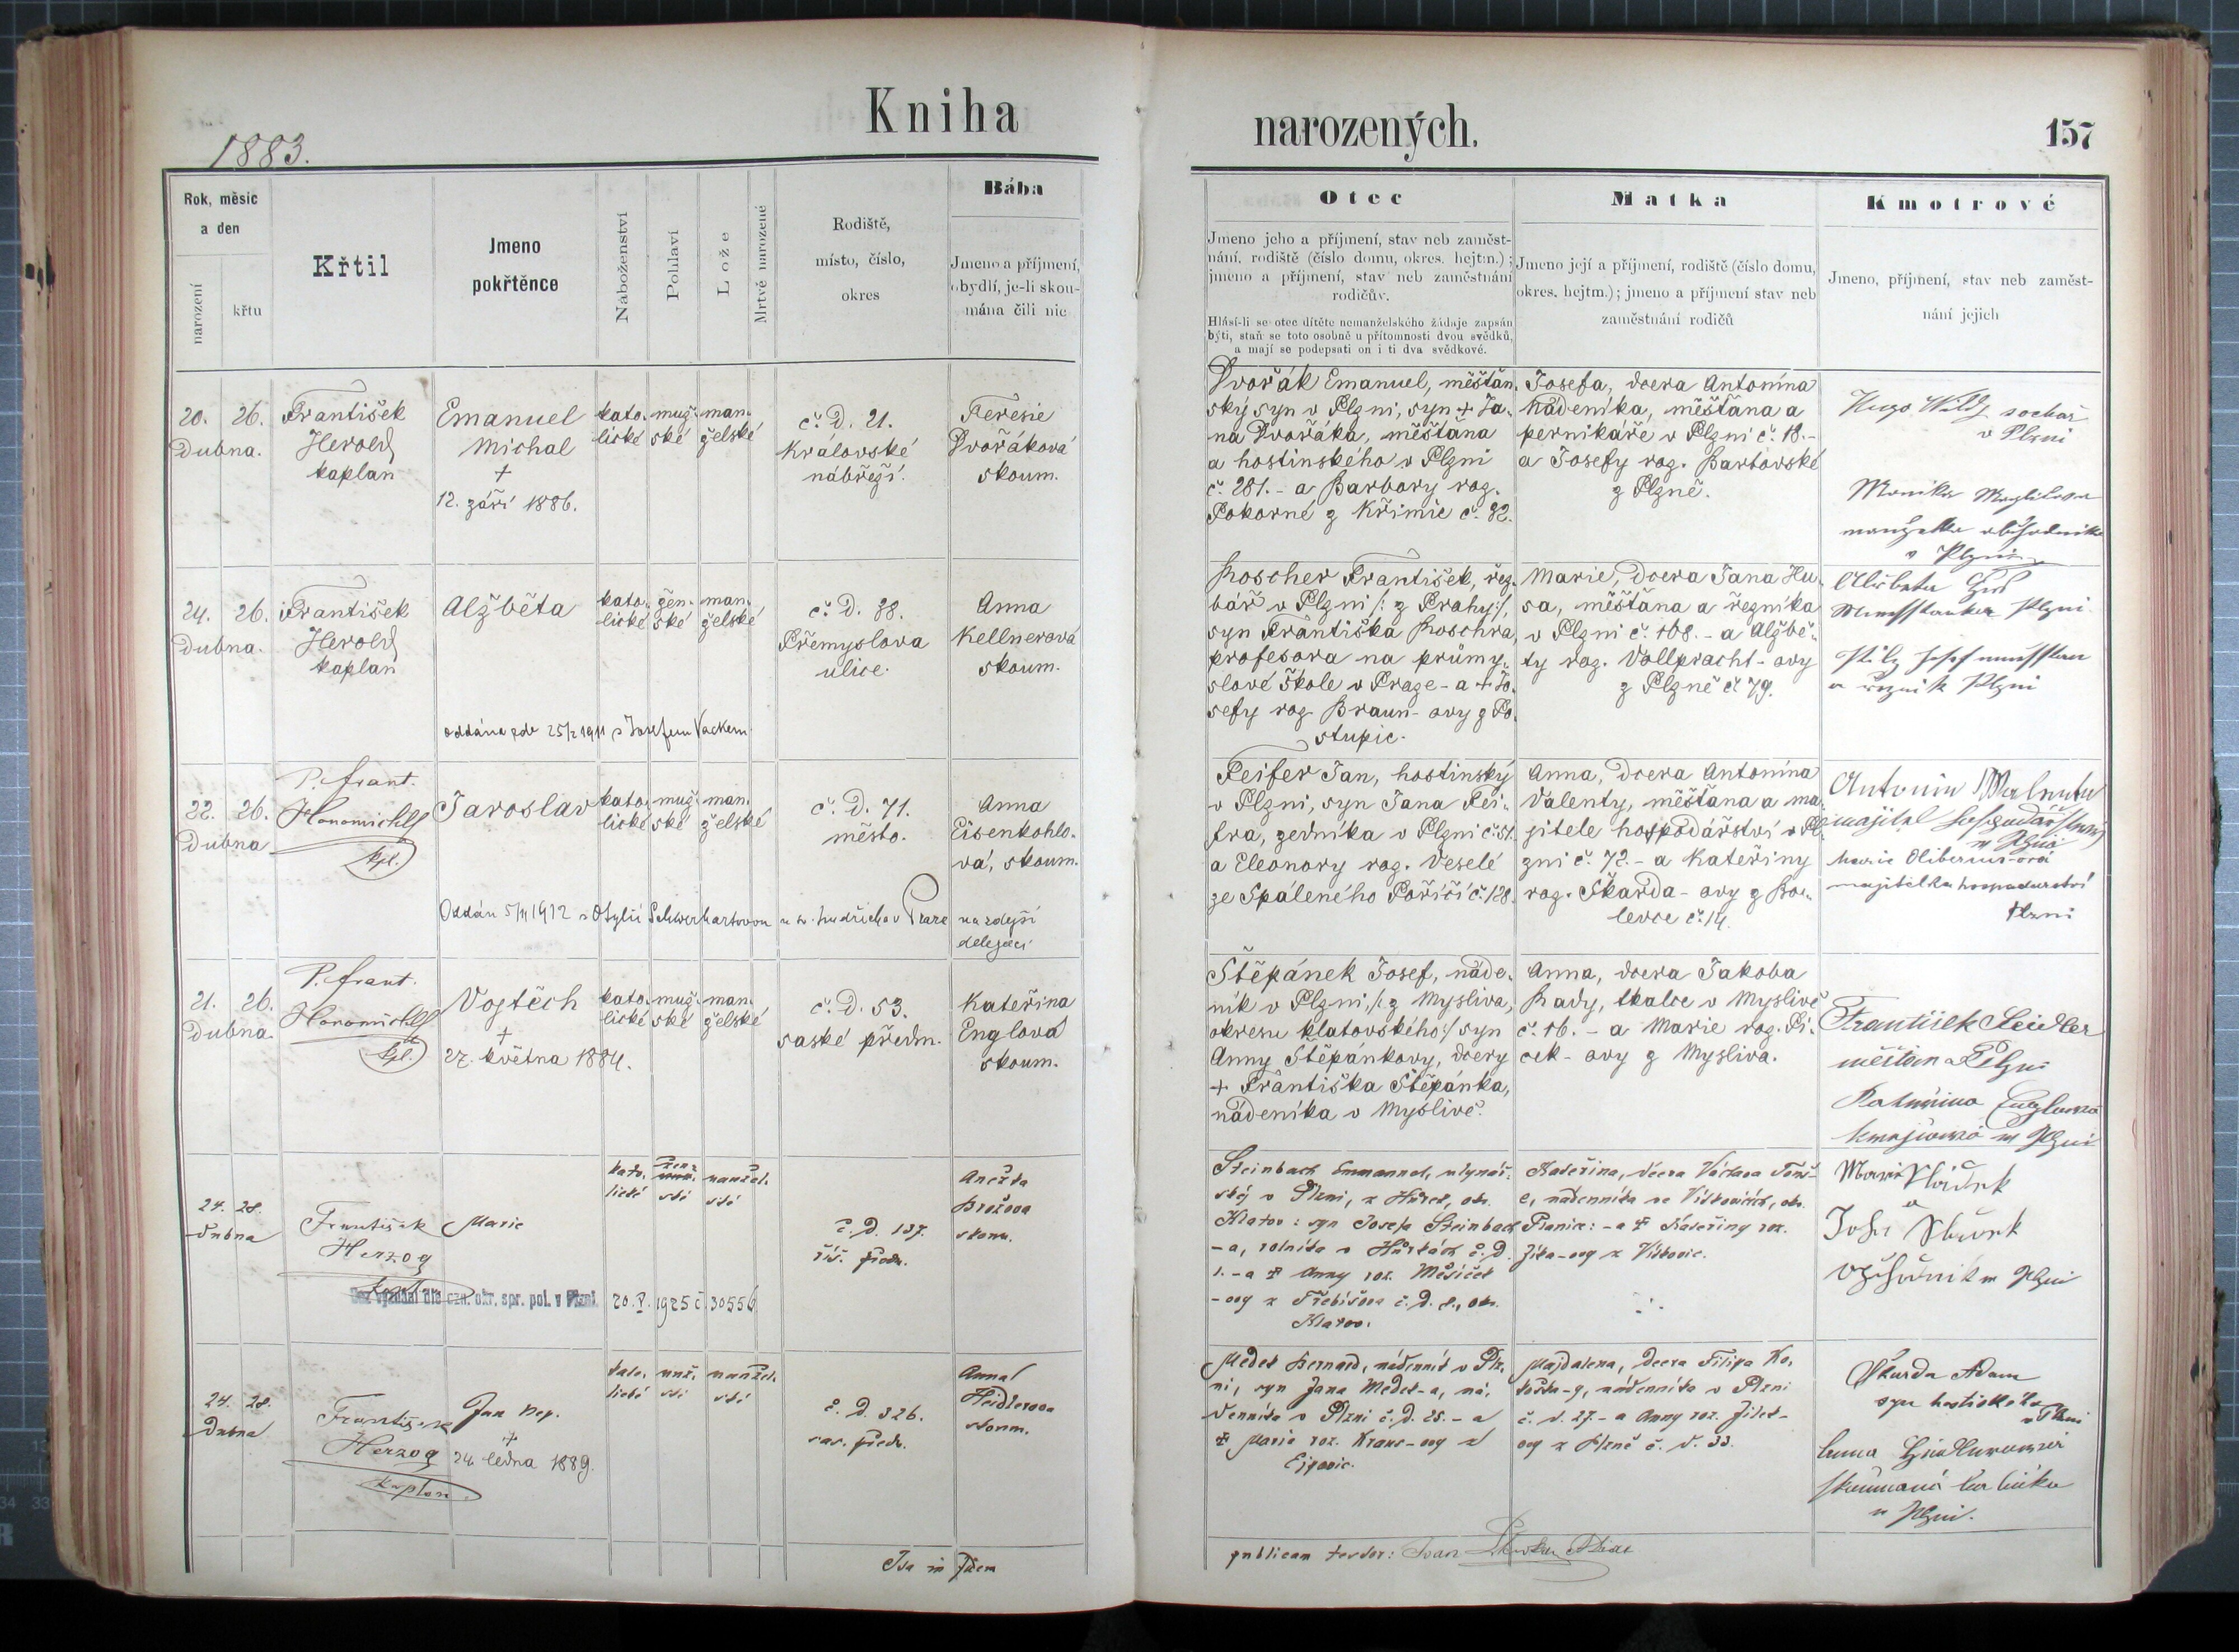 Kniha
narozených.
157
1883.
Rok, měsíc
a den
narození
křtu
Křtil
Jmeno
pokřtěnce
Náboženství
Pohlaví
Lože
Mrtvě narozené
Rodiště,
místo, číslo,
okres
Bába
Jmeno a příjmení,
obydlí, je-li skou-
mána čili nic
Otec
Jmeno jeho a příjmení, stav neb zaměst-
nání, rodiště (číslo domu, okres. hejtm.);
jmeno a příjmení, stav neb zaměstnání
rodičův.
Hlásí-li se otec dítěte nemanželského žádaje zapsán
býti, staň se toto osobně u přítomnosti dvou svědků,
a mají se podepsati on i ti dva svědkové.
Matka
Jmeno její a příjmení, rodiště (číslo domu,
okres. hejtm.); jmeno a příjmení stav neb
zaměstnání rodičů
Kmotrové
Jmeno, příjmení, stav neb zaměst-
nání jejich
20. 26.
Dubna.
František
Herold
kaplan
Emanuel
Michal
+
12. září 1886.
kato-
lické
muž-
ské
man-
želské
č. D. 21.
Královské
nábřeží.
Teresie
Dvořáková
skoum.
Dvořák Emanuel, měšťan-
ský syn v Plzni, syn + Ja-
na Dvořáka, měšťana
a hostinského v Plzni
č. 281. - a Barbory roz.
Pokorné z Křimic č. 32.
Josefa, dcera Antonína
Nádeníka, měšťana a
pernikáře v Plzni č. 18. -
a Josefy roz. Bartovské
z Plzně.
Hugo Wild, sochař
v Plzni
Monika
manželka obchodníka
v Plzni
24. 26.
Dubna.
František
Herold
kaplan
Alžběta
oddána zde 25/2 1911 s Josefem Vackem
kato-
lické
žen-
ské
man-
želské
č. D. 38.
Přemyslova
ulice.
Anna
Kellnerová
skoum.
Boscher František, řez-
bář v Plzni /: z Prahy:/,
syn Františka Boschra,
profesora na průmy-
slové škole v Praze - a + Jo-
sefy roz. Braun-ovy z Po-
stupic.
Marie, dcera Jana Hu-
sa, měšťana a řezníka
v Plzni č. 108. - a Alžbě-
ty roz. Vollpracht-ovy
z Plzně č. 79.
Alžbeta Hus
Plzni
Josef
a řezník Plzni
22. 26.
Dubna
P. Frant.
Honomichl
kpl.
Jaroslav
kato-
lické
muž-
ské
man-
želské
č. D. 71.
město.
Anna
Eisenkohlo-
vá, skoum.
Oddán 5/III 1912 s Otylií Schwerhartovou u sv. Jindřicha v Praze na zdejší
delegaci
Peifer Jan, hostinský
v Plzni, syn Jana Pei-
fra, zedníka v Plzni č. 51.
a Eleonory roz. Veselé
ze Spáleného Poříčí č. 128.
Anna, dcera Antonína
Valenty, měšťana a ma-
jitele hospodářství v Pl-
zni č. 72. - a Kateřiny
roz. Škarda-ovy z Bo-
levce č. 14.
Antonin
majitel hospodářství
w Plzni
Marie Oliberius-ová
majitelka hospodářství
Plzni
21. 26.
Dubna.
P. Frant.
Honomichl
kpl.
Vojtěch
+
27. května 1884.
kato-
lické
muž-
ské
man-
želské
č. D. 53.
saské předm.
Kateřina
Englová
skoum.
Štěpánek Josef, náde-
ník v Plzni, /: z Mysliva,
okresu klatovského:/ syn
Anny Štěpánkovy, dcery
+ Františka Štěpánka,
nádeníka v Myslivě.
Anna, dcera Jakoba
Rady, tkalce v Myslivě
č. 16. - a Marie roz. Pi-
cek-ovy z Mysliva.
František Seidler
měštan v Plzni
Kateřina Englová
w Plzni
24. 28.
dubna
František
Herzog
kaplan
Marie
kato-
lické
žen-
ské
manžel-
ské
č. D. 137.
říš. předm.
Anežka
Brožova
skoum.
Bez vyznání dle ozn. okr. spr. pol. v Plzni. 20. V. 1925 č. 30556
Steinbach Emmanuel, mlynář-
ský v Plzni, z Hůrek, okr.
Klatov: syn Josefa Steinbach
-a, rolníka v Hůrkách č. D.
1. - a + Anny roz. Měsíček
-ovy z Třebíšova č. D. 8., okr.
Klatov.
Kateřina, dcera Václava
e, nádenníka ve Vískovicích, okr.
Planice: - a + Kateřiny roz.
Zíka-ovy z Vískovic.
Marie
a
Josef
obchodník w Plzni
24. 28.
Dubna
František
Herzog
kaplan
Jan Nep.
+
24. ledna 1889.
kato-
lické
muž-
ské
manžel-
ské
č. D. 326.
sas. předm.
Anna
Heidlerova
skoum.
Medek Bernard, nádenník v Plz-
ni, syn Jana Medek-a, ná-
denníka v Plzni č. D. 25. - a
+ Marie roz. Kraus-ovy z
Ejpovic.
Majdalena, dcera Filipa Ko-
-y, nádenníka v Plzni
č. d. 27. - a Anny roz. Jílek-
ovy z Plzně č. d. 33.
Škarda Adam
syn hostinského
v Plzni
Anna
w Plzni.
Ita in fidem
publicam testor: